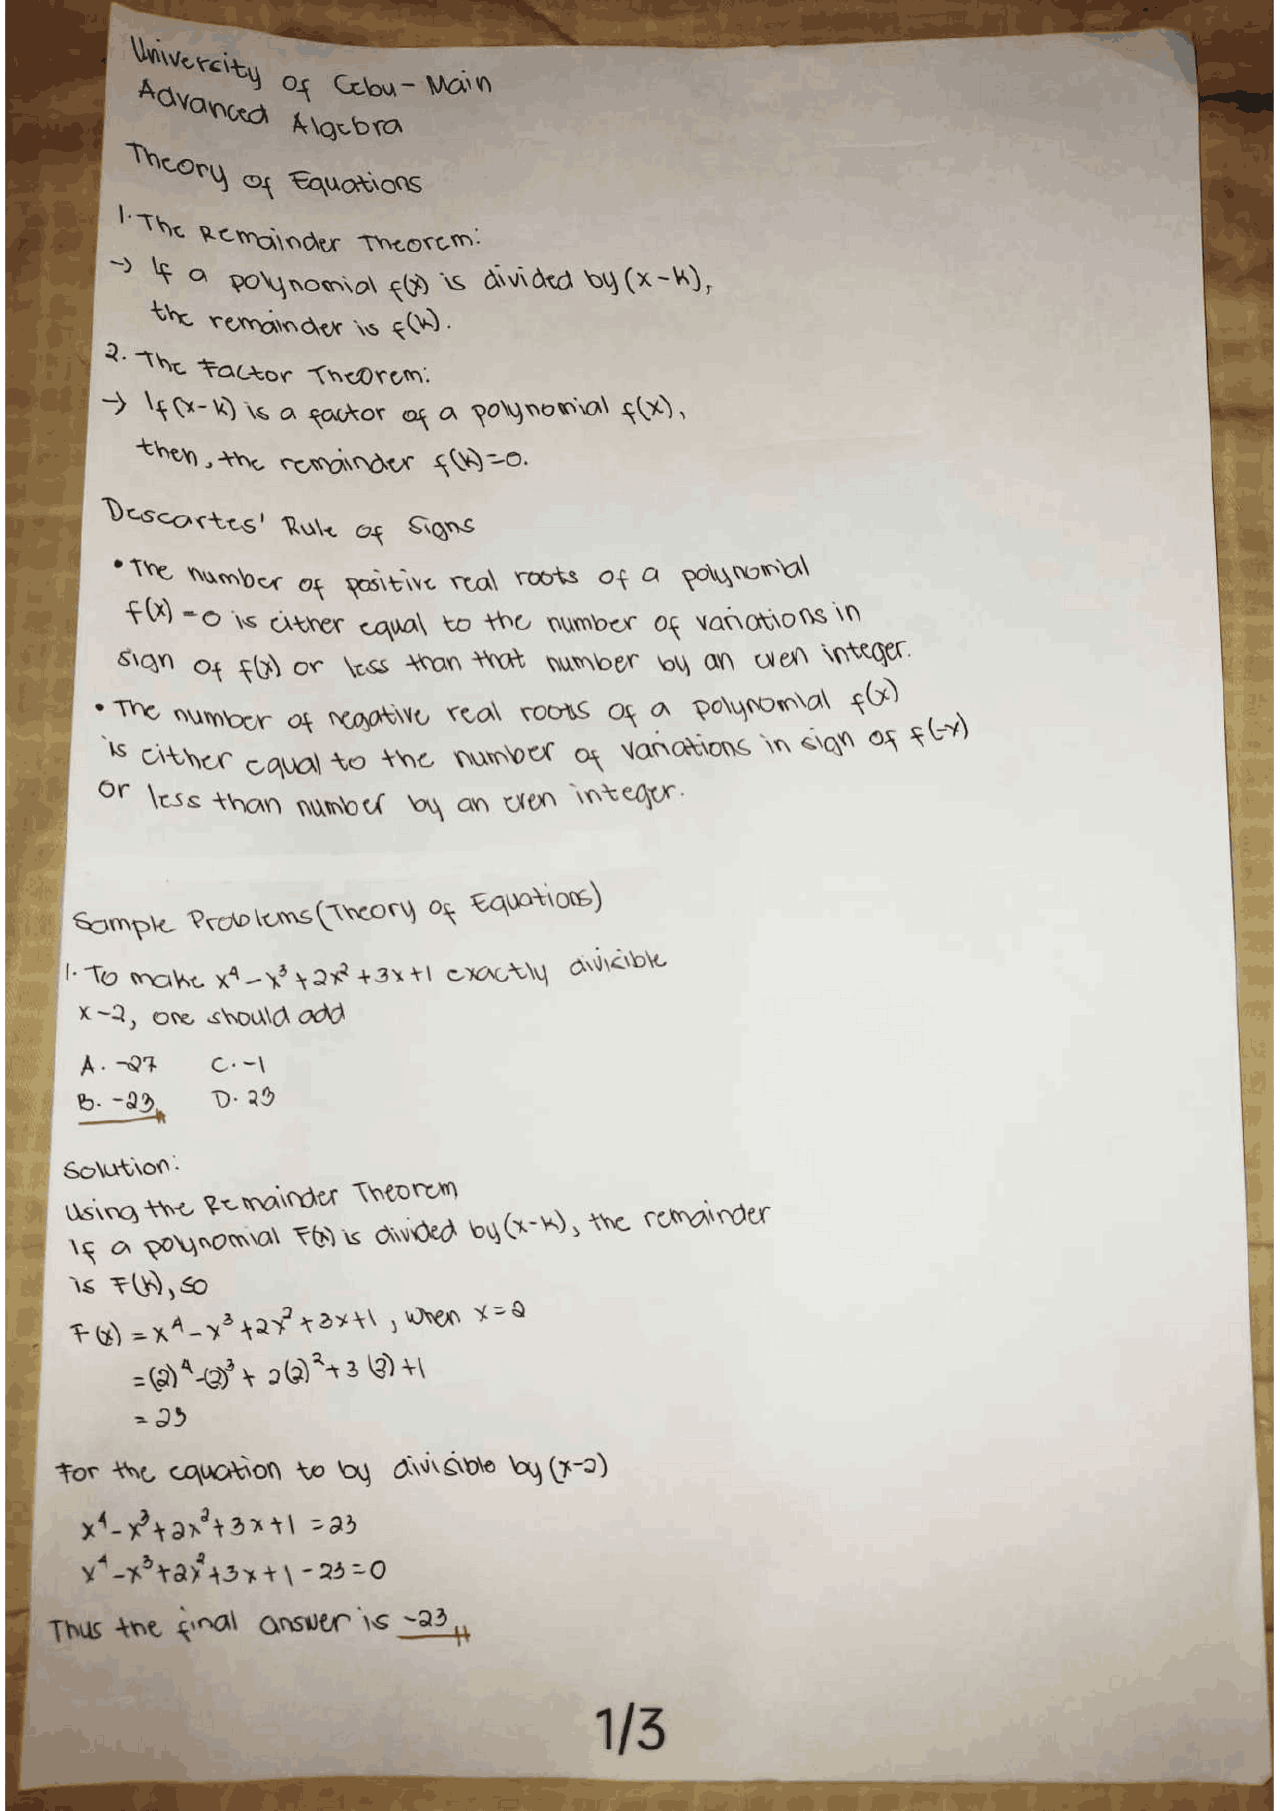 University of Cebu - Main
Advanced Algebra
Theory of Equations
1. The Remainder Theorem:
→ If a polynomial f(x) is divided by (x-k),
the remainder is f(k).
2. The Factor Theorem:
→ If (x-k) is a factor of a polynomial f(x),
then, the remainder f(k)=0.
Descartes' Rule of Signs
• The number of positive real roots of a polynomial
f(x)=0 is either equal to the number of variations in
sign of f(x) or less than that number by an even integer.
• The number of negative real roots of a polynomial f(x)
is either equal to the number of variations in sign of f(-x)
or less than number by an even integer.
Sample Problems (Theory of Equations)
1. To make x⁴-x³+2x²+3x+1 exactly divisible
x-2, one should add
A. -27 C. -1
B. -23 D. 23
Solution:
Using the Remainder Theorem
If a polynomial F(x) is divided by (x-k), the remainder
is F(k), so
F(x) = x⁴-x³+2x²+3x+1, when x=2
=(2)⁴-(2)³+2(2)²+3(2)+1
= 23
For the equation to by divisible by (x-2)
x⁴-x³+2x²+3x+1 =23
x⁴-x³+2x²+3x+1-23=0
Thus the final answer is -23
1/3